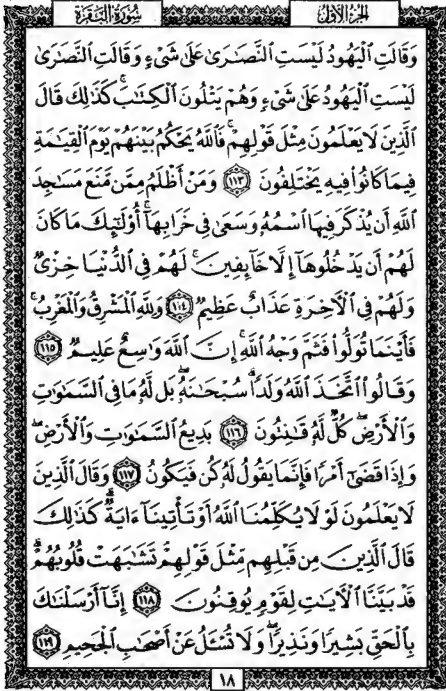 سُورَةُ البَقَرَةِ
الجزء الأول
وَقَالَتِ ٱلْيَهُودُ لَيْسَتِ ٱلنَّصَٰرَىٰ عَلَىٰ شَىْءٍ وَقَالَتِ ٱلنَّصَٰرَىٰ
لَيْسَتِ ٱلْيَهُودُ عَلَىٰ شَىْءٍ وَهُمْ يَتْلُونَ ٱلْكِتَٰبَ ۗ كَذَٰلِكَ قَالَ
ٱلَّذِينَ لَا يَعْلَمُونَ مِثْلَ قَوْلِهِمْ ۚ فَٱللَّهُ يَحْكُمُ بَيْنَهُمْ يَوْمَ ٱلْقِيَٰمَةِ
فِيمَا كَانُوا۟ فِيهِ يَخْتَلِفُونَ ١١٣ وَمَنْ أَظْلَمُ مِمَّن مَّنَعَ مَسَٰجِدَ
ٱللَّهِ أَن يُذْكَرَ فِيهَا ٱسْمُهُۥ وَسَعَىٰ فِى خَرَابِهَآ ۚ أُو۟لَٰٓئِكَ مَا كَانَ
لَهُمْ أَن يَدْخُلُوهَآ إِلَّا خَآئِفِينَ ۚ لَهُمْ فِى ٱلدُّنْيَا خِزْىٌ
وَلَهُمْ فِى ٱلْءَاخِرَةِ عَذَابٌ عَظِيمٌ ١١٤ وَلِلَّهِ ٱلْمَشْرِقُ وَٱلْمَغْرِبُ ۚ
فَأَيْنَمَا تُوَلُّوا۟ فَثَمَّ وَجْهُ ٱللَّهِ ۚ إِنَّ ٱللَّهَ وَٰسِعٌ عَلِيمٌ ١١٥
وَقَالُوا۟ ٱتَّخَذَ ٱللَّهُ وَلَدًا ۗ سُبْحَٰنَهُۥ ۖ بَل لَّهُۥ مَا فِى ٱلسَّمَٰوَٰتِ
وَٱلْأَرْضِ ۖ كُلٌّ لَّهُۥ قَٰنِتُونَ ١١٦ بَدِيعُ ٱلسَّمَٰوَٰتِ وَٱلْأَرْضِ ۖ
وَإِذَا قَضَىٰٓ أَمْرًا فَإِنَّمَا يَقُولُ لَهُۥ كُن فَيَكُونُ ١١٧ وَقَالَ ٱلَّذِينَ
لَا يَعْلَمُونَ لَوْلَا يُكَلِّمُنَا ٱللَّهُ أَوْ تَأْتِينَآ ءَايَةٌ ۗ كَذَٰلِكَ
قَالَ ٱلَّذِينَ مِن قَبْلِهِم مِّثْلَ قَوْلِهِمْ ۘ تَشَٰبَهَتْ قُلُوبُهُمْ ۗ
قَدْ بَيَّنَّا ٱلْءَايَٰتِ لِقَوْمٍ يُوقِنُونَ ١١٨ إِنَّآ أَرْسَلْنَٰكَ
بِٱلْحَقِّ بَشِيرًا وَنَذِيرًا ۖ وَلَا تُسْـَٔلُ عَنْ أَصْحَٰبِ ٱلْجَحِيمِ ١١٩
١٨